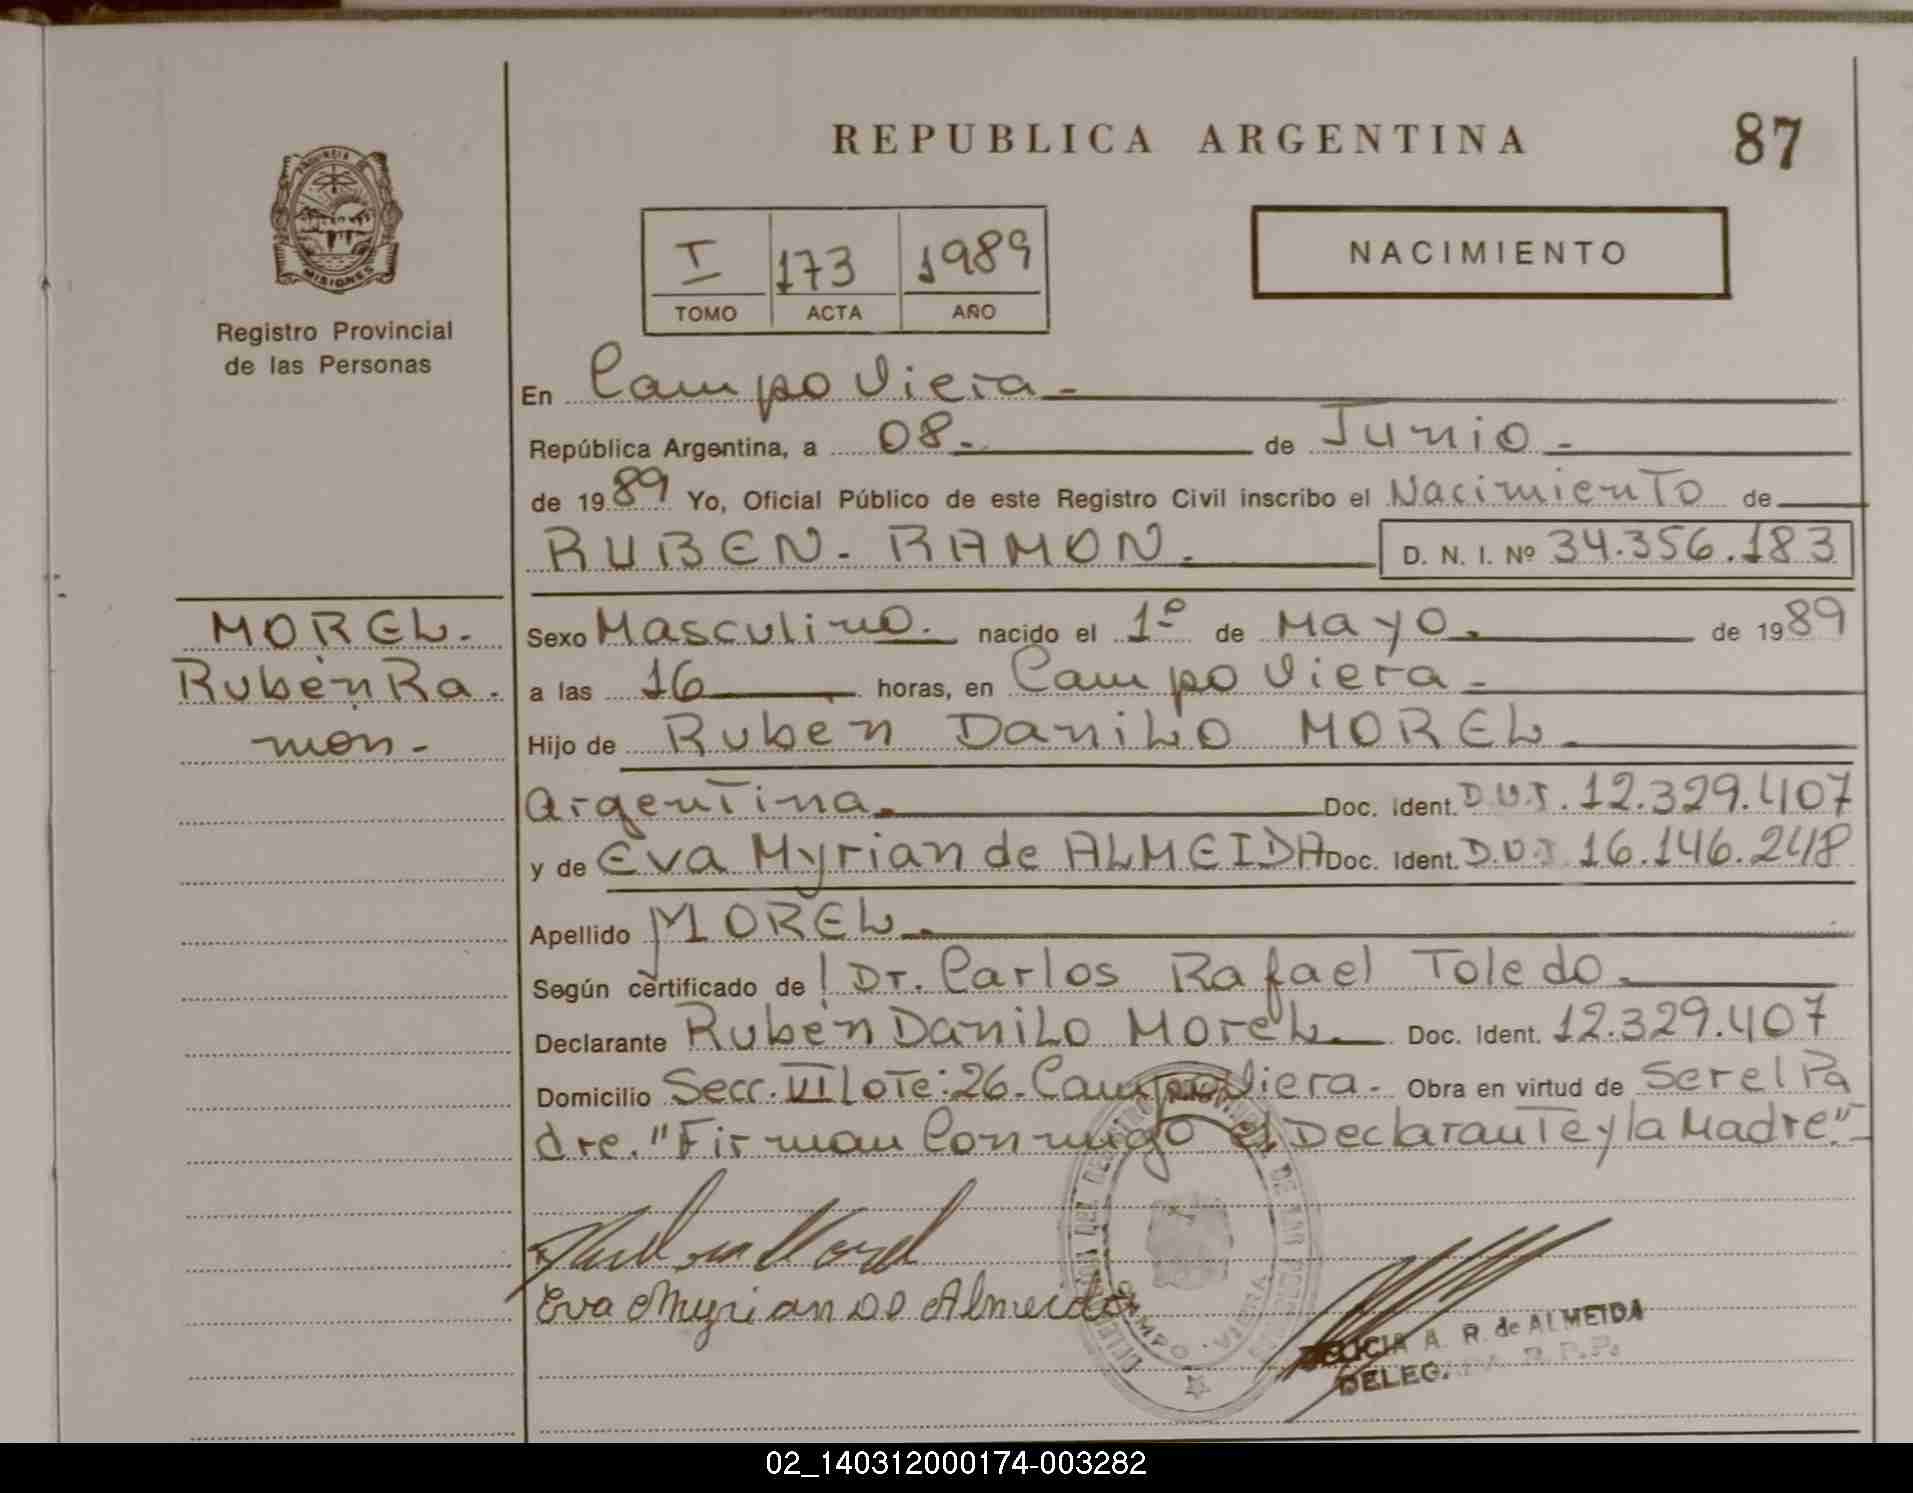 REPUBLICA ARGENTINA
87
PROVINCIA DE
MISIONES
Registro Provincial
de las Personas
I 173 1989
TOMO ACTA AÑO
NACIMIENTO
En Campo Viera.-
República Argentina, a 08.- de Junio.-
de 1989 Yo, Oficial Público de este Registro Civil inscribo el Nacimiento de
RUBEN. RAMON. D. N. I. Nº 34.356.183
MOREL.
Rubén Ra.
món.-
Sexo Masculino. nacido el 1º de Mayo. de 1989
a las 16 horas, en Campo Viera.-
Hijo de Rubén Danilo MOREL.
Argentina. Doc. Ident. D.N.I. 12.329.407
y de Eva Myrian de ALMEIDA Doc. Ident. D.N.I. 16.146.248
Apellido MOREL.
Según certificado de Dr. Carlos Rafael Toledo.
Declarante Rubén Danilo Morel. Doc. Ident. 12.329.407
Domicilio Secc. VI Lote: 26. Campo Viera.- Obra en virtud de Ser el Pa
dre. "Firman Conmigo el Declarante y la Madre".-
Eva Myrian de Almeida
CAMPO · VIERA
A. R. de ALMEIDA
DELEGADA R.P.P.
02_140312000174-003282